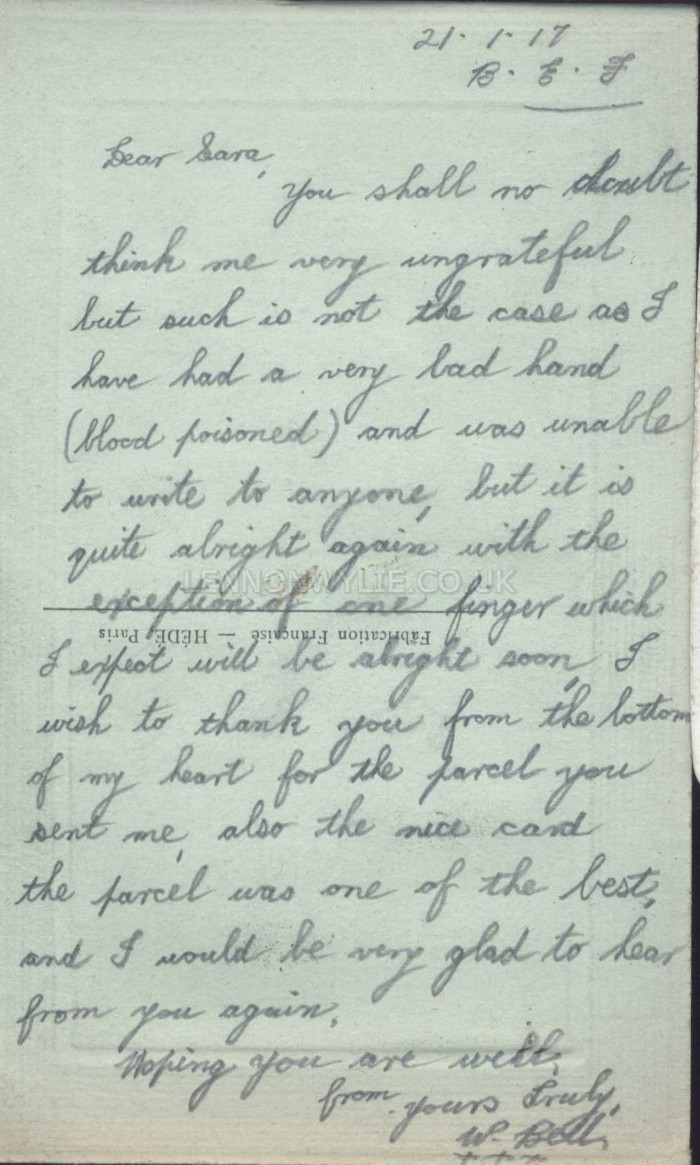 21. 1. 17
B. E. F
Dear Sara,
You shall no doubt
think me very ungrateful
but such is not the case as I
have had a very bad hand
(blood poisoned) and was unable
to write to anyone, but it is
quite alright again with the
LENNONWYLIE.CO.UK
exception of one finger which
Fabrication Française — HÉDÉ Paris
I expect will be alright soon, I
wish to thank you from the bottom
of my heart for the parcel you
sent me, also the nice card
the parcel was one of the best,
and I would be very glad to hear
from you again.
Hoping you are well,
from yours Truly,
W. Bell
+ + +